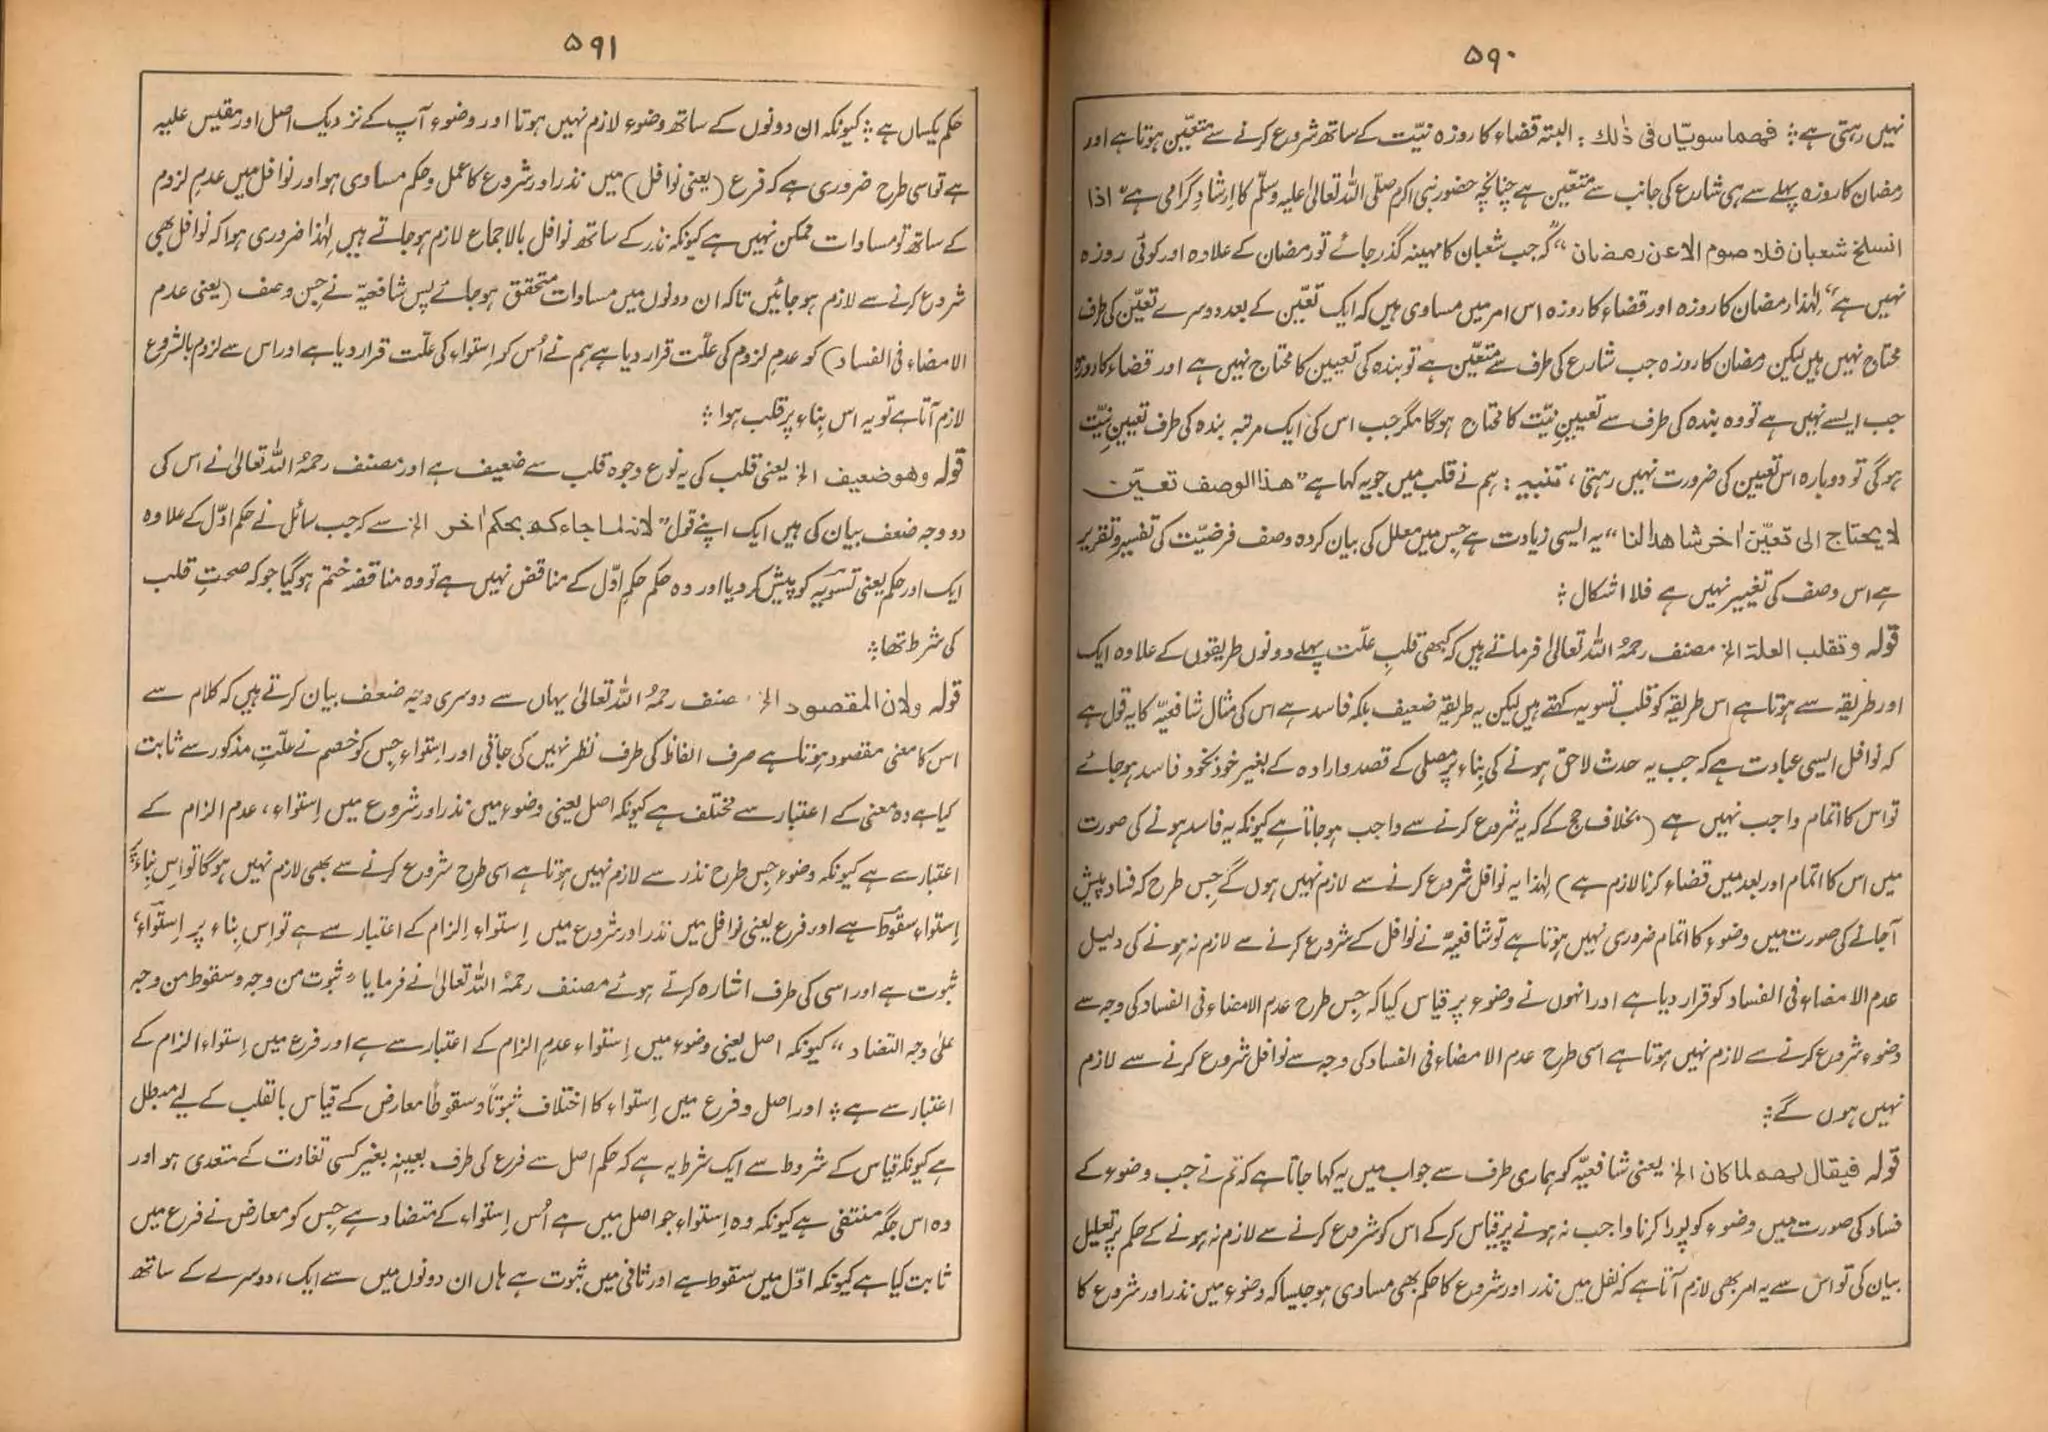 ۵۹۰
نہیں رہتی ہے ؞ فهما سويّان فى ذٰلك : البتہ قضاء کا روزہ نیّت کے ساتھ شروع کرنے سے متعیّن ہوتا ہے اور
رمضان کا روزہ پہلے سے ہی شارع کی جانب سے متعّین ہے چنانچہ حضور نبی اکرم صلّی اللہ تعالیٰ علیہ وسلّم کا ارشادِ گرامی ہے " اذا
انسلخ شعبان فلا صوم الا عن رمضان " کہ جب شعبان کا مہینہ گذر جائے تو رمضان کے علاوہ اور کوئی روزہ
نہیں ہے " لہٰذا رمضان کا روزہ اور قضاء کا روزہ اس امر میں مساوی ہیں کہ ایک تعّین کے بعد دوسرے تعیّن کی طرف
محتاج نہیں ہیں لیکن رمضان کا روزہ جب شارع کی طرف سے متعّین ہے تو بندہ کی تعیین کا محتاج نہیں ہے اور قضاء کا روزہ
جب ایسے نہیں ہے تو وہ بندہ کی طرف سے تعیینِ نیّت کا محتاج ہوگا مگر جب اس کی ایک مرتبہ بندہ کی طرف تعیینِ نیّت
ہوگی تو دوبارہ اس تعیین کی ضرورت نہیں رہتی ، تنبیہ : ہم نے قلب میں جو یہ کہا ہے " هذا الوصف تعيّن
لا يحتاج الى تعيّن اٰخر شاهدا لنا " یہ ایسی زیادت ہے جس میں معلل کی بیان کردہ وصف فرضیّت کی تفسیر و تقریر
ہے اس وصف کی تغییر نہیں ہے فلا اشکال ؞
قولہ وتقلب العلة الخ مصنف رحمہُ اللہ تعالیٰ فرماتے ہیں کہ کبھی قلبِ علّت پہلے دونوں طریقوں کے علاوہ ایک
اور طریقہ سے ہوتا ہے اس طریقہ کو قلب تسویہ کہتے ہیں لیکن یہ طریقہ ضعیف بلکہ فاسد ہے اس کی مثال شافعیہؒ کا یہ قول ہے
کہ نوافل ایسی عبادت ہے کہ جب یہ حدث لاحق ہونے کی بناء پر مصلی کے قصد و ارادہ کے بغیر خود بخود فاسد ہو جائے
تو اس کا اتمام واجب نہیں ہے ( بخلاف حج کے کہ یہ شروع کرنے سے واجب ہو جاتا ہے کیونکہ یہ فاسد ہونے کی صورت
میں اس کا اتمام اور بعد میں قضاء کرنا لازم ہے ) لہٰذا یہ نوافل شروع کرنے سے لازم نہیں ہوں گے جس طرح کہ فساد پیش
آجانے کی صورت میں وضوء کا اتمام ضروری نہیں ہوتا ہے تو شافعیہؒ نے نوافل کے شروع کرنے سے لازم نہ ہونے کی دلیل
عدم الامضاء فی الفساد کو قرار دیا ہے اور انہوں نے وضوء پر قیاس کیا کہ جس طرح عدم الامضاء فی الفساد کی وجہ سے
وضوء شروع کرنے سے لازم نہیں ہوتا ہے اسی طرح عدم الامضاء فی الفساد کی وجہ سے نوافل شروع کرنے سے لازم
نہیں ہوں گے ؞
قولہ فيقال لهم لما كان الخ یعنی شافعیہؒ کو ہماری طرف سے جواب میں یہ کہا جاتا ہے کہ تم نے جب وضوء کے
فساد کی صورت میں وضوء کو پورا کرنا واجب نہ ہونے پر قیاس کرکے اس کو شروع کرنے سے لازم نہ ہونے کے حکم پر تعلیل
بیان کی تو اس سے یہ امر بھی لازم آتا ہے کہ نفل میں نذر اور شروع کا حکم بھی مساوی ہو جیسا کہ وضوء میں نذر اور شروع کا
۵۹۱
حکم یکساں ہے ؞ کیونکہ ان دونوں کے ساتھ وضوء لازم نہیں ہوتا اور وضوء آپ کے نزدیک اصل اور مقیس علیہ
ہے تو اسی طرح ضروری ہے کہ فرع ( یعنی نوافل ) میں نذر اور شروع کا عمل و حکم مساوی ہو اور نوافل میں عدمِ لزوم
کے ساتھ تو مساوات ممکن نہیں ہے کیونکہ نذر کے ساتھ نوافل بالاجماع لازم ہو جاتے ہیں لہٰذا ضروری ہوا کہ نوافل بھی
شروع کرنے سے لازم ہو جائیں تاکہ ان دونوں میں مساوات متحقق ہو جائے پس شافعیہؒ نے جس وصف ( یعنی عدم
الامضاء فی الفساد ) کو عدمِ لزوم کی علّت قرار دیا ہے ہم نے اُس کو اِستواء کی علّت قرار دیا ہے اور اس سے لزوم بالشروع
لازم آتا ہے تو یہ اس بناء پر قلب ہوا ؞
قولہ وهو ضعيف الخ یعنی قلب کی یہ نوع وجوہ قلب سے ضعیف ہے اور مصنف رحمہُ اللہ تعالیٰ نے اس کی
دو وجہ ضعف بیان کی ہیں ایک اپنے قول " لانه لما جاء بحكم اٰخر الخ سے کہ جب سائل نے حکم اوّل کے علاوہ
ایک اور حکم یعنی تسویہ کو پیش کر دیا اور وہ حکم حکمِ اوّل کے مناقض نہیں ہے تو وہ مناقضہ ختم ہوگیا جو کہ صحتِ قلب
کی شرط تھا ؞
قولہ ولان المقصود الخ مصنف رحمہُ اللہ تعالیٰ یہاں سے دوسری وجہ ضعف بیان کرتے ہیں کہ کلام سے
اس کا معنی مقصود ہوتا ہے صرف الفاظ کی طرف نظر نہیں کی جاتی اور اِستواء جس کو خصم نے علّتِ مذکور سے ثابت
کیا ہے وہ معنی کے اعتبار سے مختلف ہے کیونکہ اصل یعنی وضوء میں نذر اور شروع میں اِستواء ، عدم الزام کے
اعتبار سے ہے کیونکہ وضوء جس طرح نذر سے لازم نہیں ہوتا ہے اسی طرح شروع کرنے سے بھی لازم نہیں ہوگا تو اس بناء پر
اِستواء سقوط ہے اور فرع یعنی نوافل میں نذر اور شروع میں اِستواء اِلزام کے اعتبار سے ہے تو اس بناء پر اِستواء ،
ثبوت ہے اور اسی کی طرف اشارہ کرتے ہوئے مصنف رحمہُ اللہ تعالیٰ نے فرمایا " ثبوت من وجہ وسقوط من وجہ
علیٰ وجہ التضاد " کیونکہ اصل یعنی وضوء میں اِستواء عدمِ الزام کے اعتبار سے ہے اور فرع میں اِستواء الزام کے
اعتبار سے ہے ؞ اور اصل و فرع میں اِستواء کا اختلاف ثبوتاً وسقوطاً معارض کے قیاس بالقلب کے لیے مبطل
ہے کیونکہ قیاس کے شروط سے ایک شرط یہ ہے کہ حکم اصل سے فرع کی طرف بعینہٖ بغیر کسی تفاوت کے متعدی ہو اور
وہ اس جگہ منتفی ہے کیونکہ وہ اِستواء جو اصل میں ہے اُس اِستواء کے متضاد ہے جس کو معارض نے فرع میں
ثابت کیا ہے کیونکہ اوّل میں سقوط ہے اور ثانی میں ثبوت ہے ہاں ان دونوں میں سے ایک ، دوسرے کے ساتھ